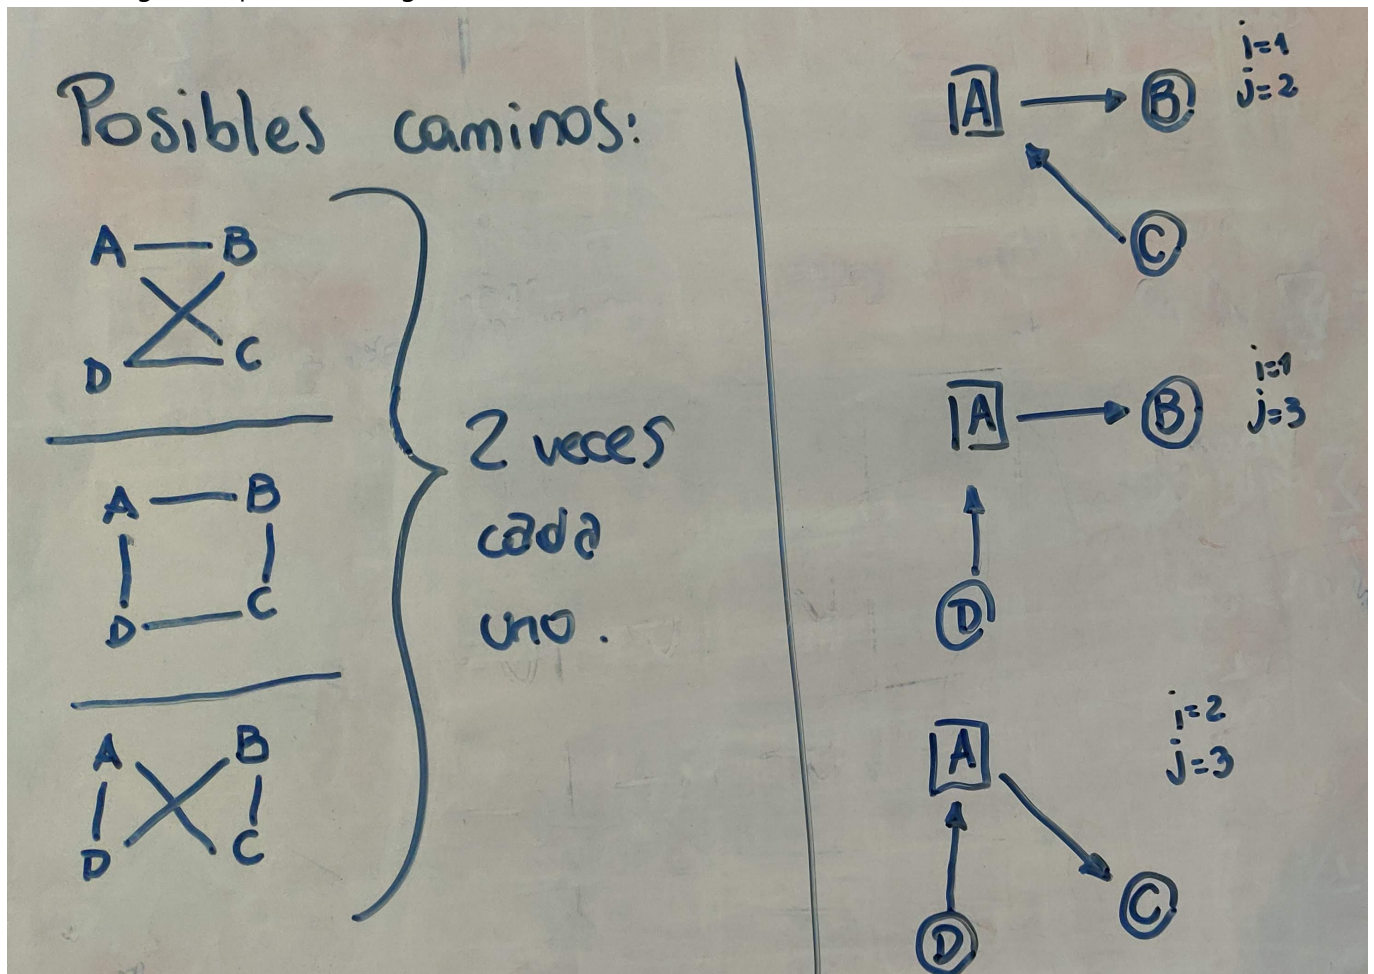 Posibles caminos:
A B
D C
A B
D C
A B
D C
2 veces
cada
uno.
i=1
j=2
A B
C
i=1
j=3
A B
D
i=2
j=3
A
C
D